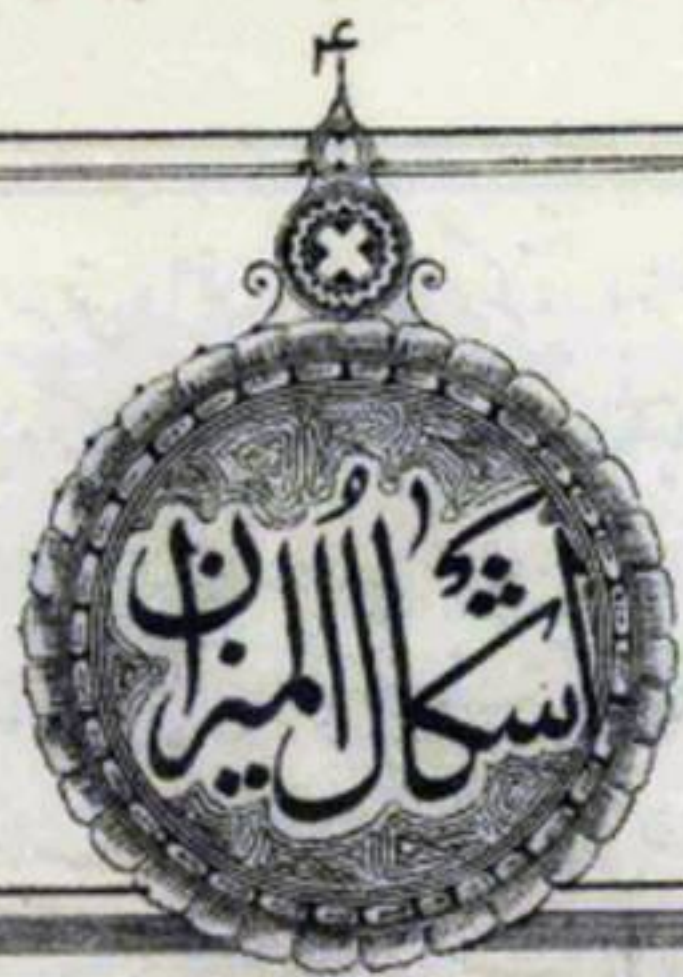 ۴
اشکالُ المیزان